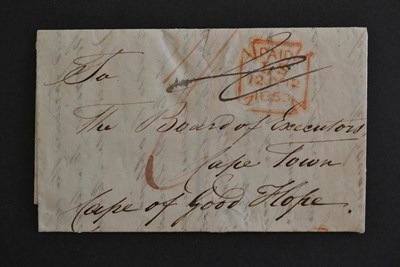 To
PAID
The Board of Executors
Cape Town
Cape of Good Hope.